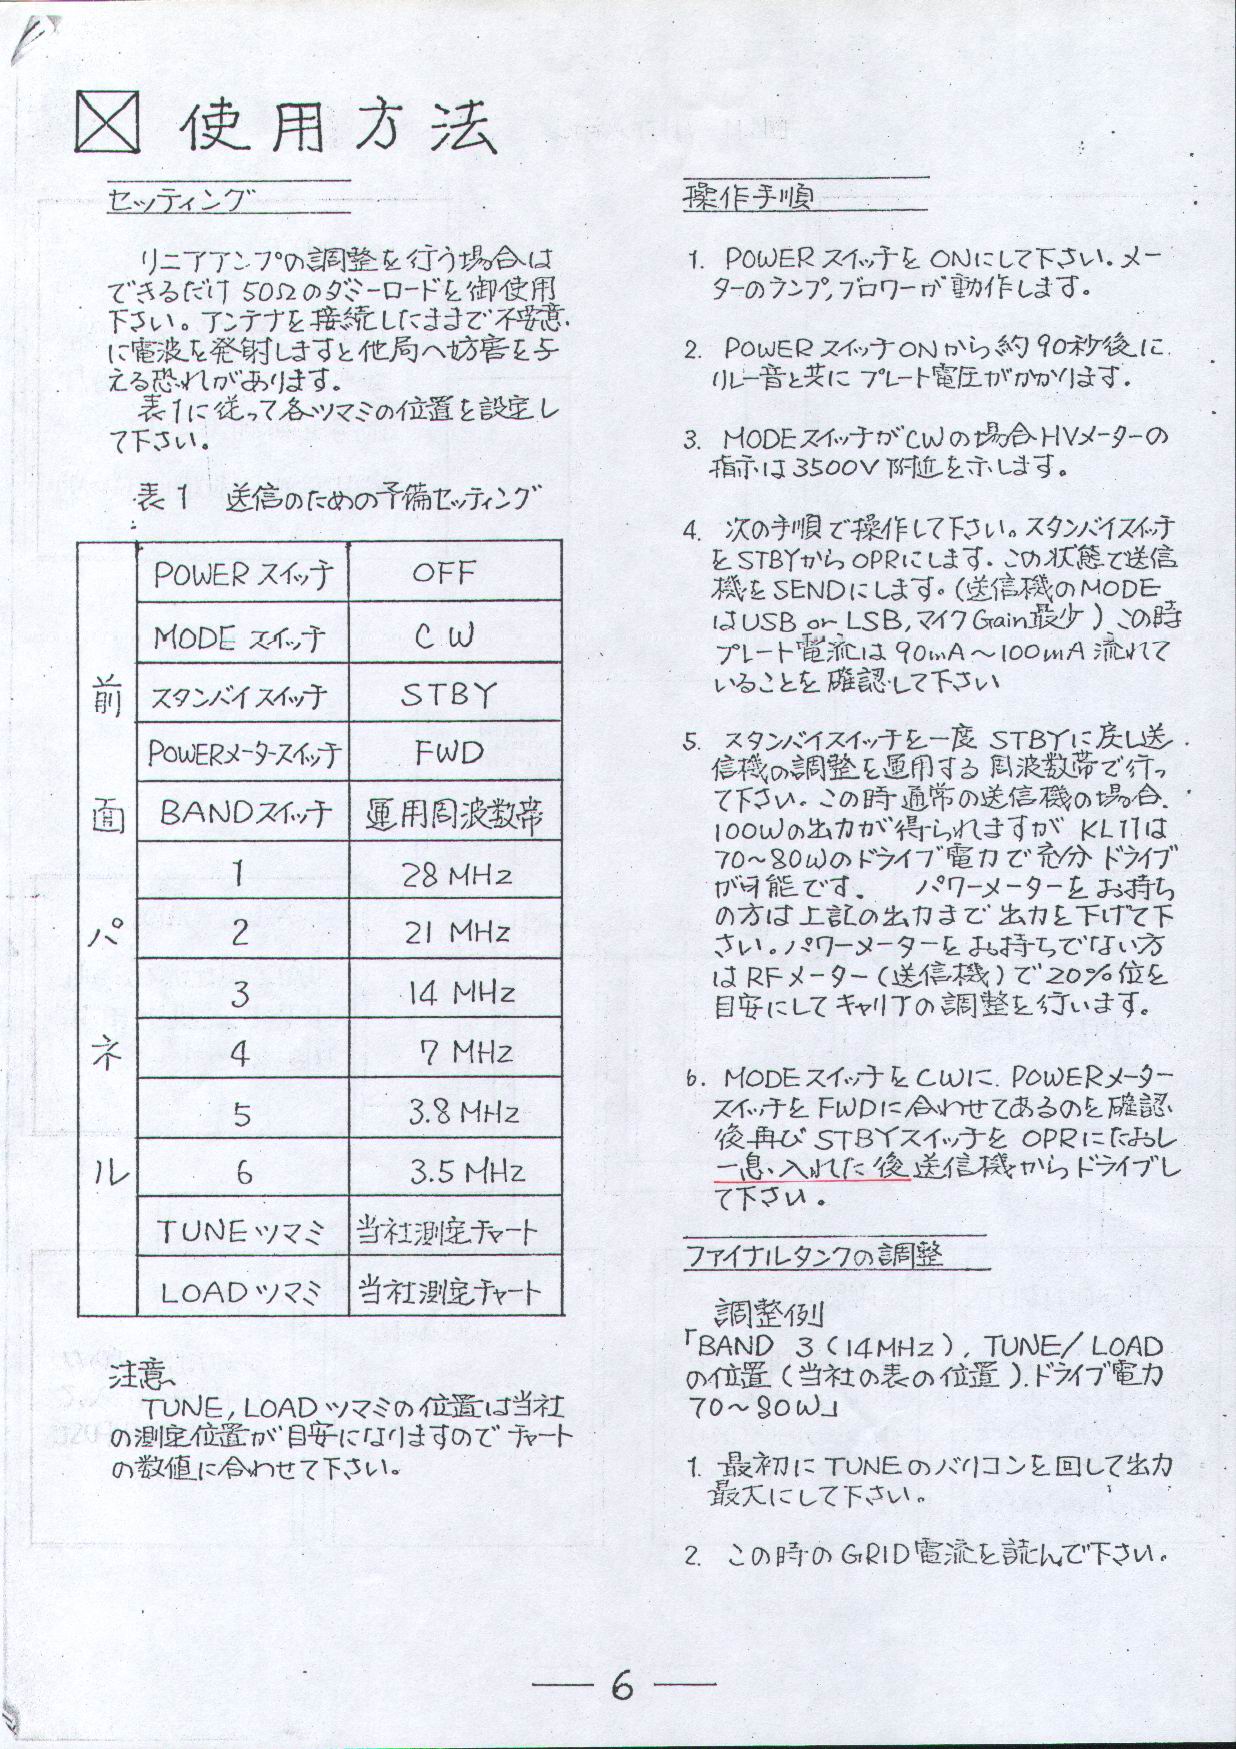 使用方法
セッティング
リニアアンプの調整を行う場合は
できるだけ 50Ωのダミーロードを御使用
下さい。アンテナを接続したままで不要意
に電波を発射しますと他局へ妨害を与
える恐れがあります。
表1に従って各ツマミの位置を設定し
て下さい。
表1 送信のための予備セッティング
前面パネル
POWERスイッチ OFF
MODEスイッチ CW
スタンバイスイッチ STBY
POWERメータースイッチ FWD
BANDスイッチ 運用周波数帯
1 28MHz
2 21MHz
3 14MHz
4 7MHz
5 3.8MHz
6 3.5MHz
TUNEツマミ 当社測定チャート
LOADツマミ 当社測定チャート
注意、
TUNE, LOADツマミの位置は当社
の測定位置が目安になりますのでチャート
の数値に合わせて下さい。
操作手順
1. POWERスイッチをONにして下さい。メー
ターのランプ,ブロワーが動作します。
2. POWERスイッチONから約90秒後に
リレー音と共にプレート電圧がかかります.
3. MODEスイッチがCWの場合HVメーターの
指示は3500V附近を示します。
4. 次の手順で操作して下さい。スタンバイスイッチ
をSTBYからOPRにします.この状態で送信
機をSENDにします.(送信機のMODE
はUSB or LSB,マイクGain最少)この時
プレート電流は90mA~100mA流れて
いることを確認して下さい
5. スタンバイスイッチを一度 STBYに戻し送
信機の調整を運用する周波数帯で行っ
て下さい.この時通常の送信機の場合.
100Wの出力が得られますが KL11は
70~80Wのドライブ電力で充分ドライブ
が可能です. パワーメーターをお持ち
の方は上記の出力まで出力を下げて下
さい。パワーメーターをお持ちでない方
はRFメーター(送信機)で20%位を
目安にしてキャリアの調整を行います。
6. MODEスイッチをCWに.POWERメーター
スイッチをFWDに合わせてあるのを確認
後再びSTBYスイッチをOPRにたおし
一息、入れた後送信機からドライブし
て下さい。
ファイナルタンクの調整
調整例
「BAND 3(14MHz), TUNE/LOAD
の位置(当社の表の位置).ドライブ電力
70~80W」
1. 最初にTUNEのバリコンを回して出力
最大にして下さい。
2. この時のGRID電流を読んで下さい。
— 6 —